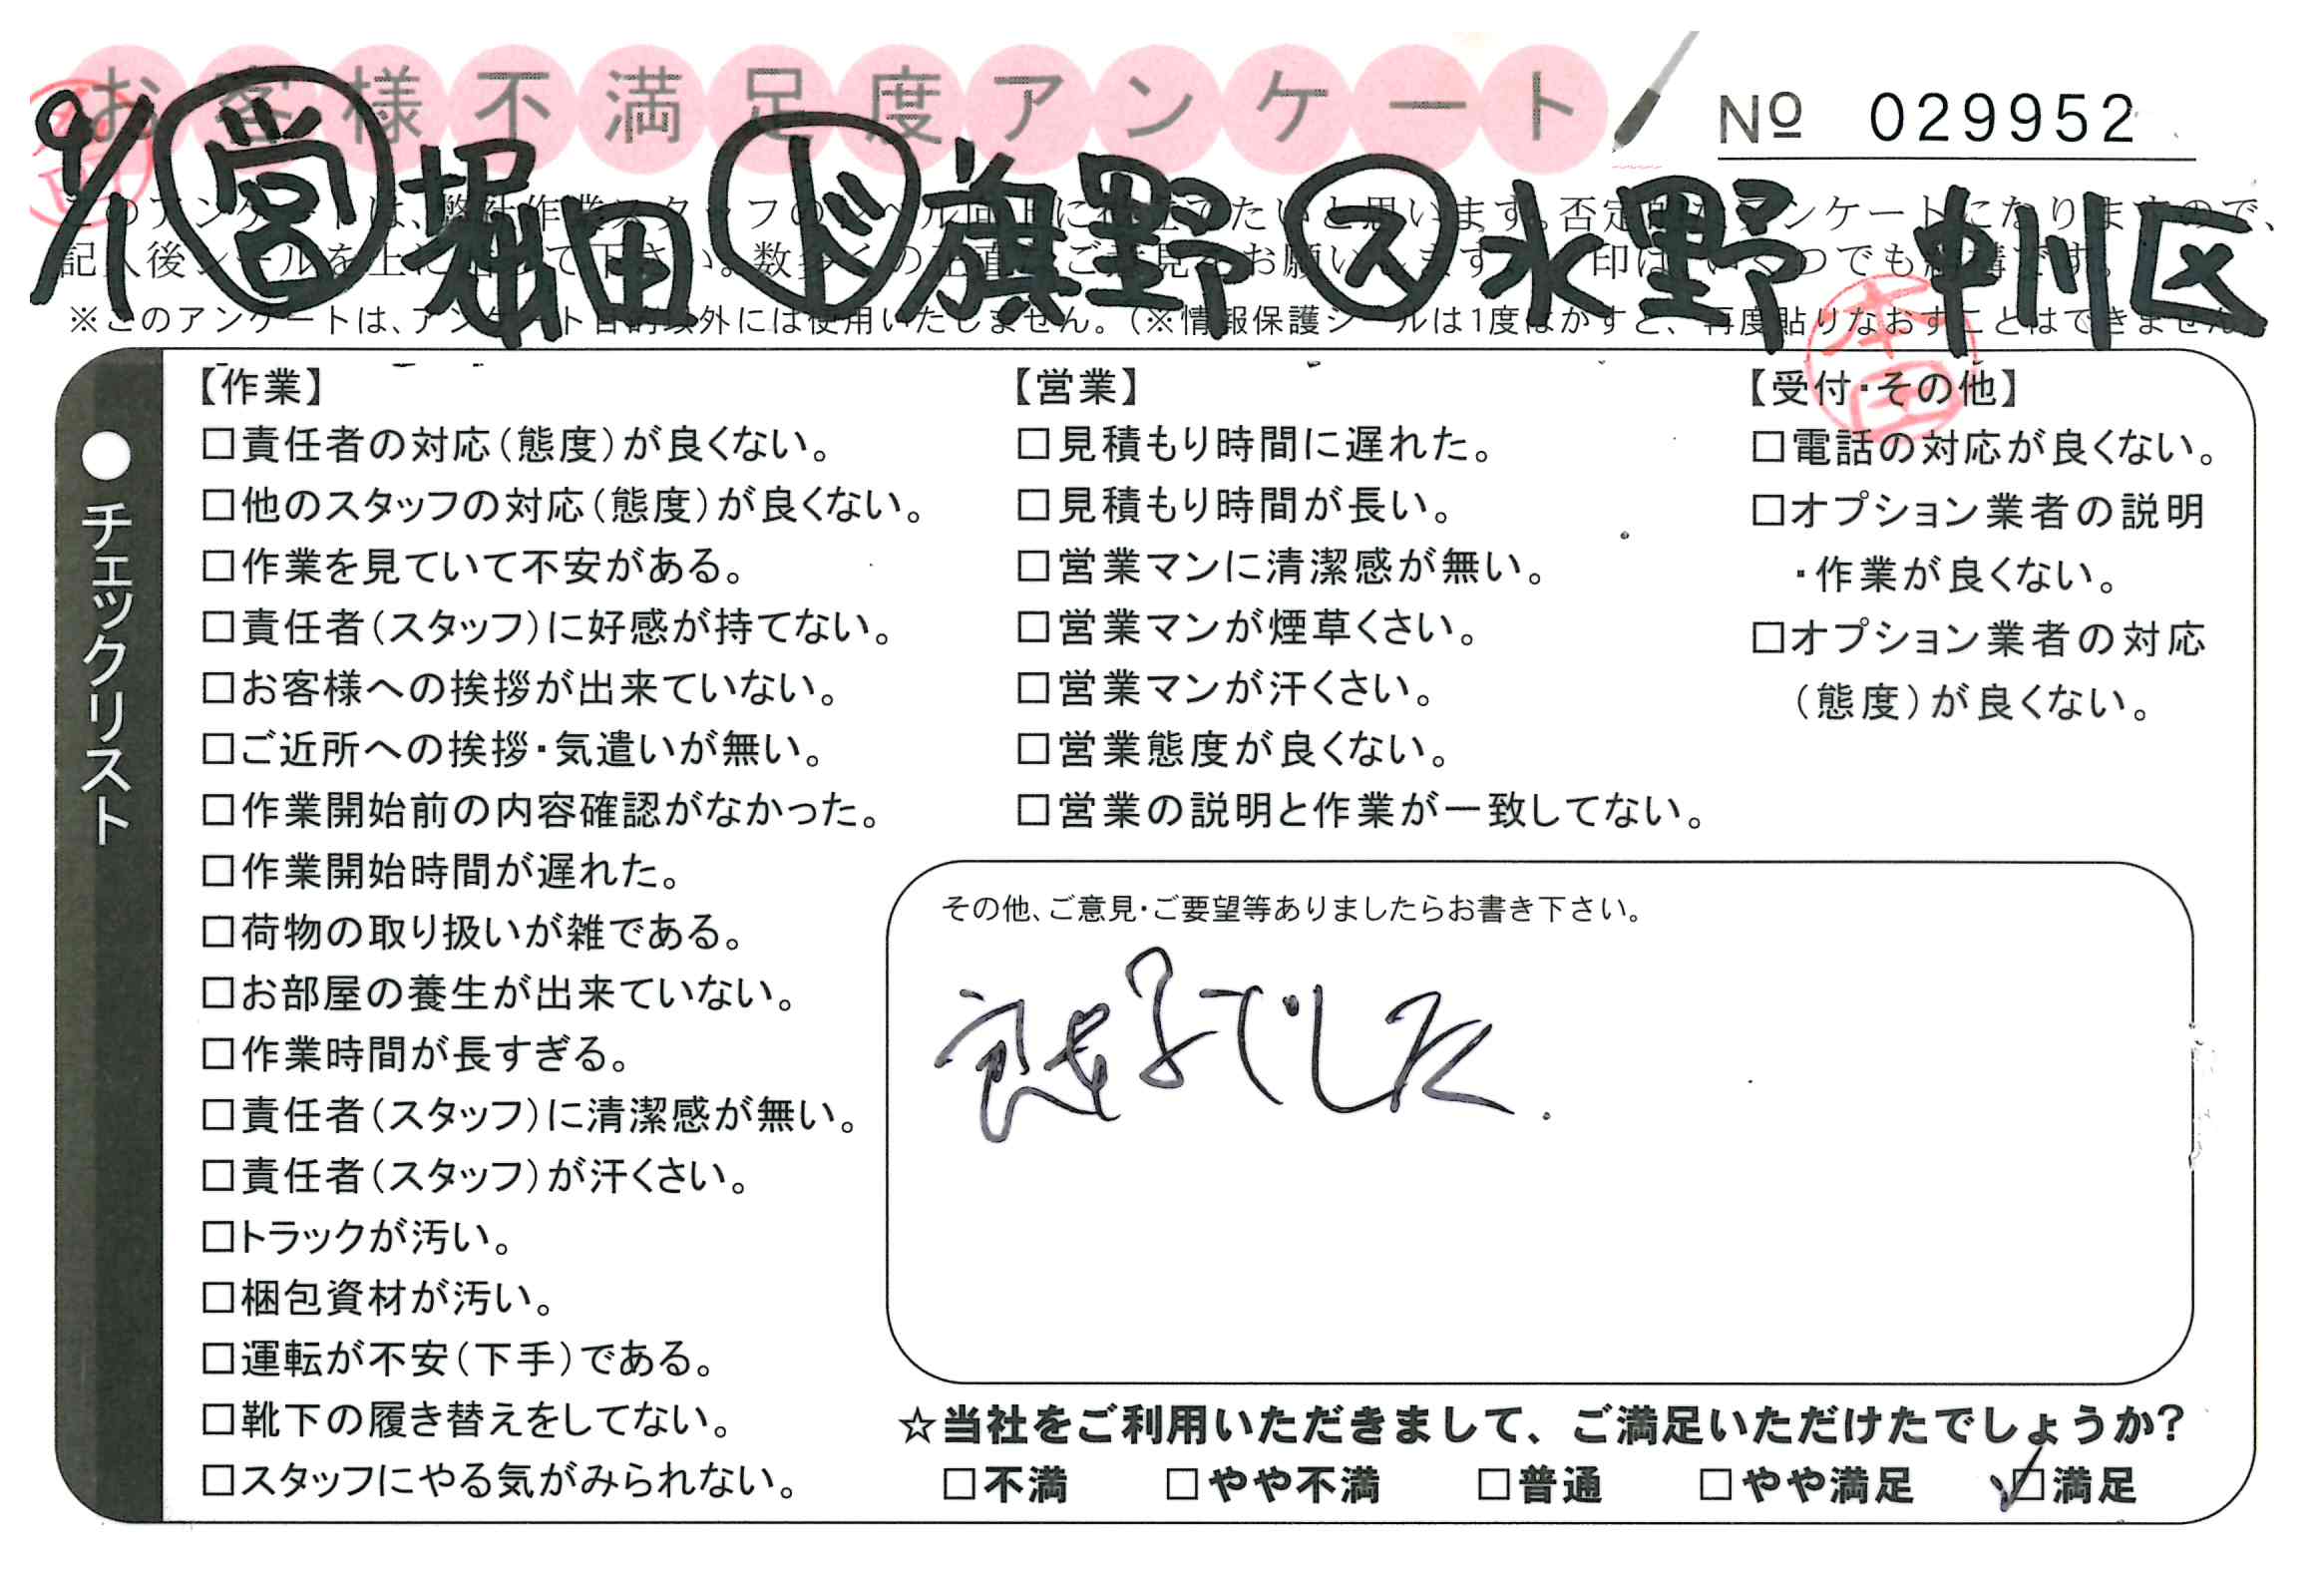 お客様不満足度アンケート
№ 029952
9/1 営 堀田 ド 旗野 ス 水野 中川区
記入後シールを上に
※このアンケートは、アンケート目的以外には使用いたしません。(※情報保護シールは1度はがすと、再度貼りなおすことはできません
本田
●チェックリスト
【作業】
□責任者の対応(態度)が良くない。
□他のスタッフの対応(態度)が良くない。
□作業を見ていて不安がある。
□責任者(スタッフ)に好感が持てない。
□お客様への挨拶が出来ていない。
□ご近所への挨拶・気遣いが無い。
□作業開始前の内容確認がなかった。
□作業開始時間が遅れた。
□荷物の取り扱いが雑である。
□お部屋の養生が出来ていない。
□作業時間が長すぎる。
□責任者(スタッフ)に清潔感が無い。
□責任者(スタッフ)が汗くさい。
□トラックが汚い。
□梱包資材が汚い。
□運転が不安(下手)である。
□靴下の履き替えをしてない。
□スタッフにやる気がみられない。
【営業】
□見積もり時間に遅れた。
□見積もり時間が長い。
□営業マンに清潔感が無い。
□営業マンが煙草くさい。
□営業マンが汗くさい。
□営業態度が良くない。
□営業の説明と作業が一致してない。
【受付・その他】
□電話の対応が良くない。
□オプション業者の説明
・作業が良くない。
□オプション業者の対応
(態度)が良くない。
その他、ご意見・ご要望等ありましたらお書き下さい。
でした.
☆当社をご利用いただきまして、ご満足いただけたでしょうか?
□不満 □やや不満 □普通 □やや満足 ☑満足